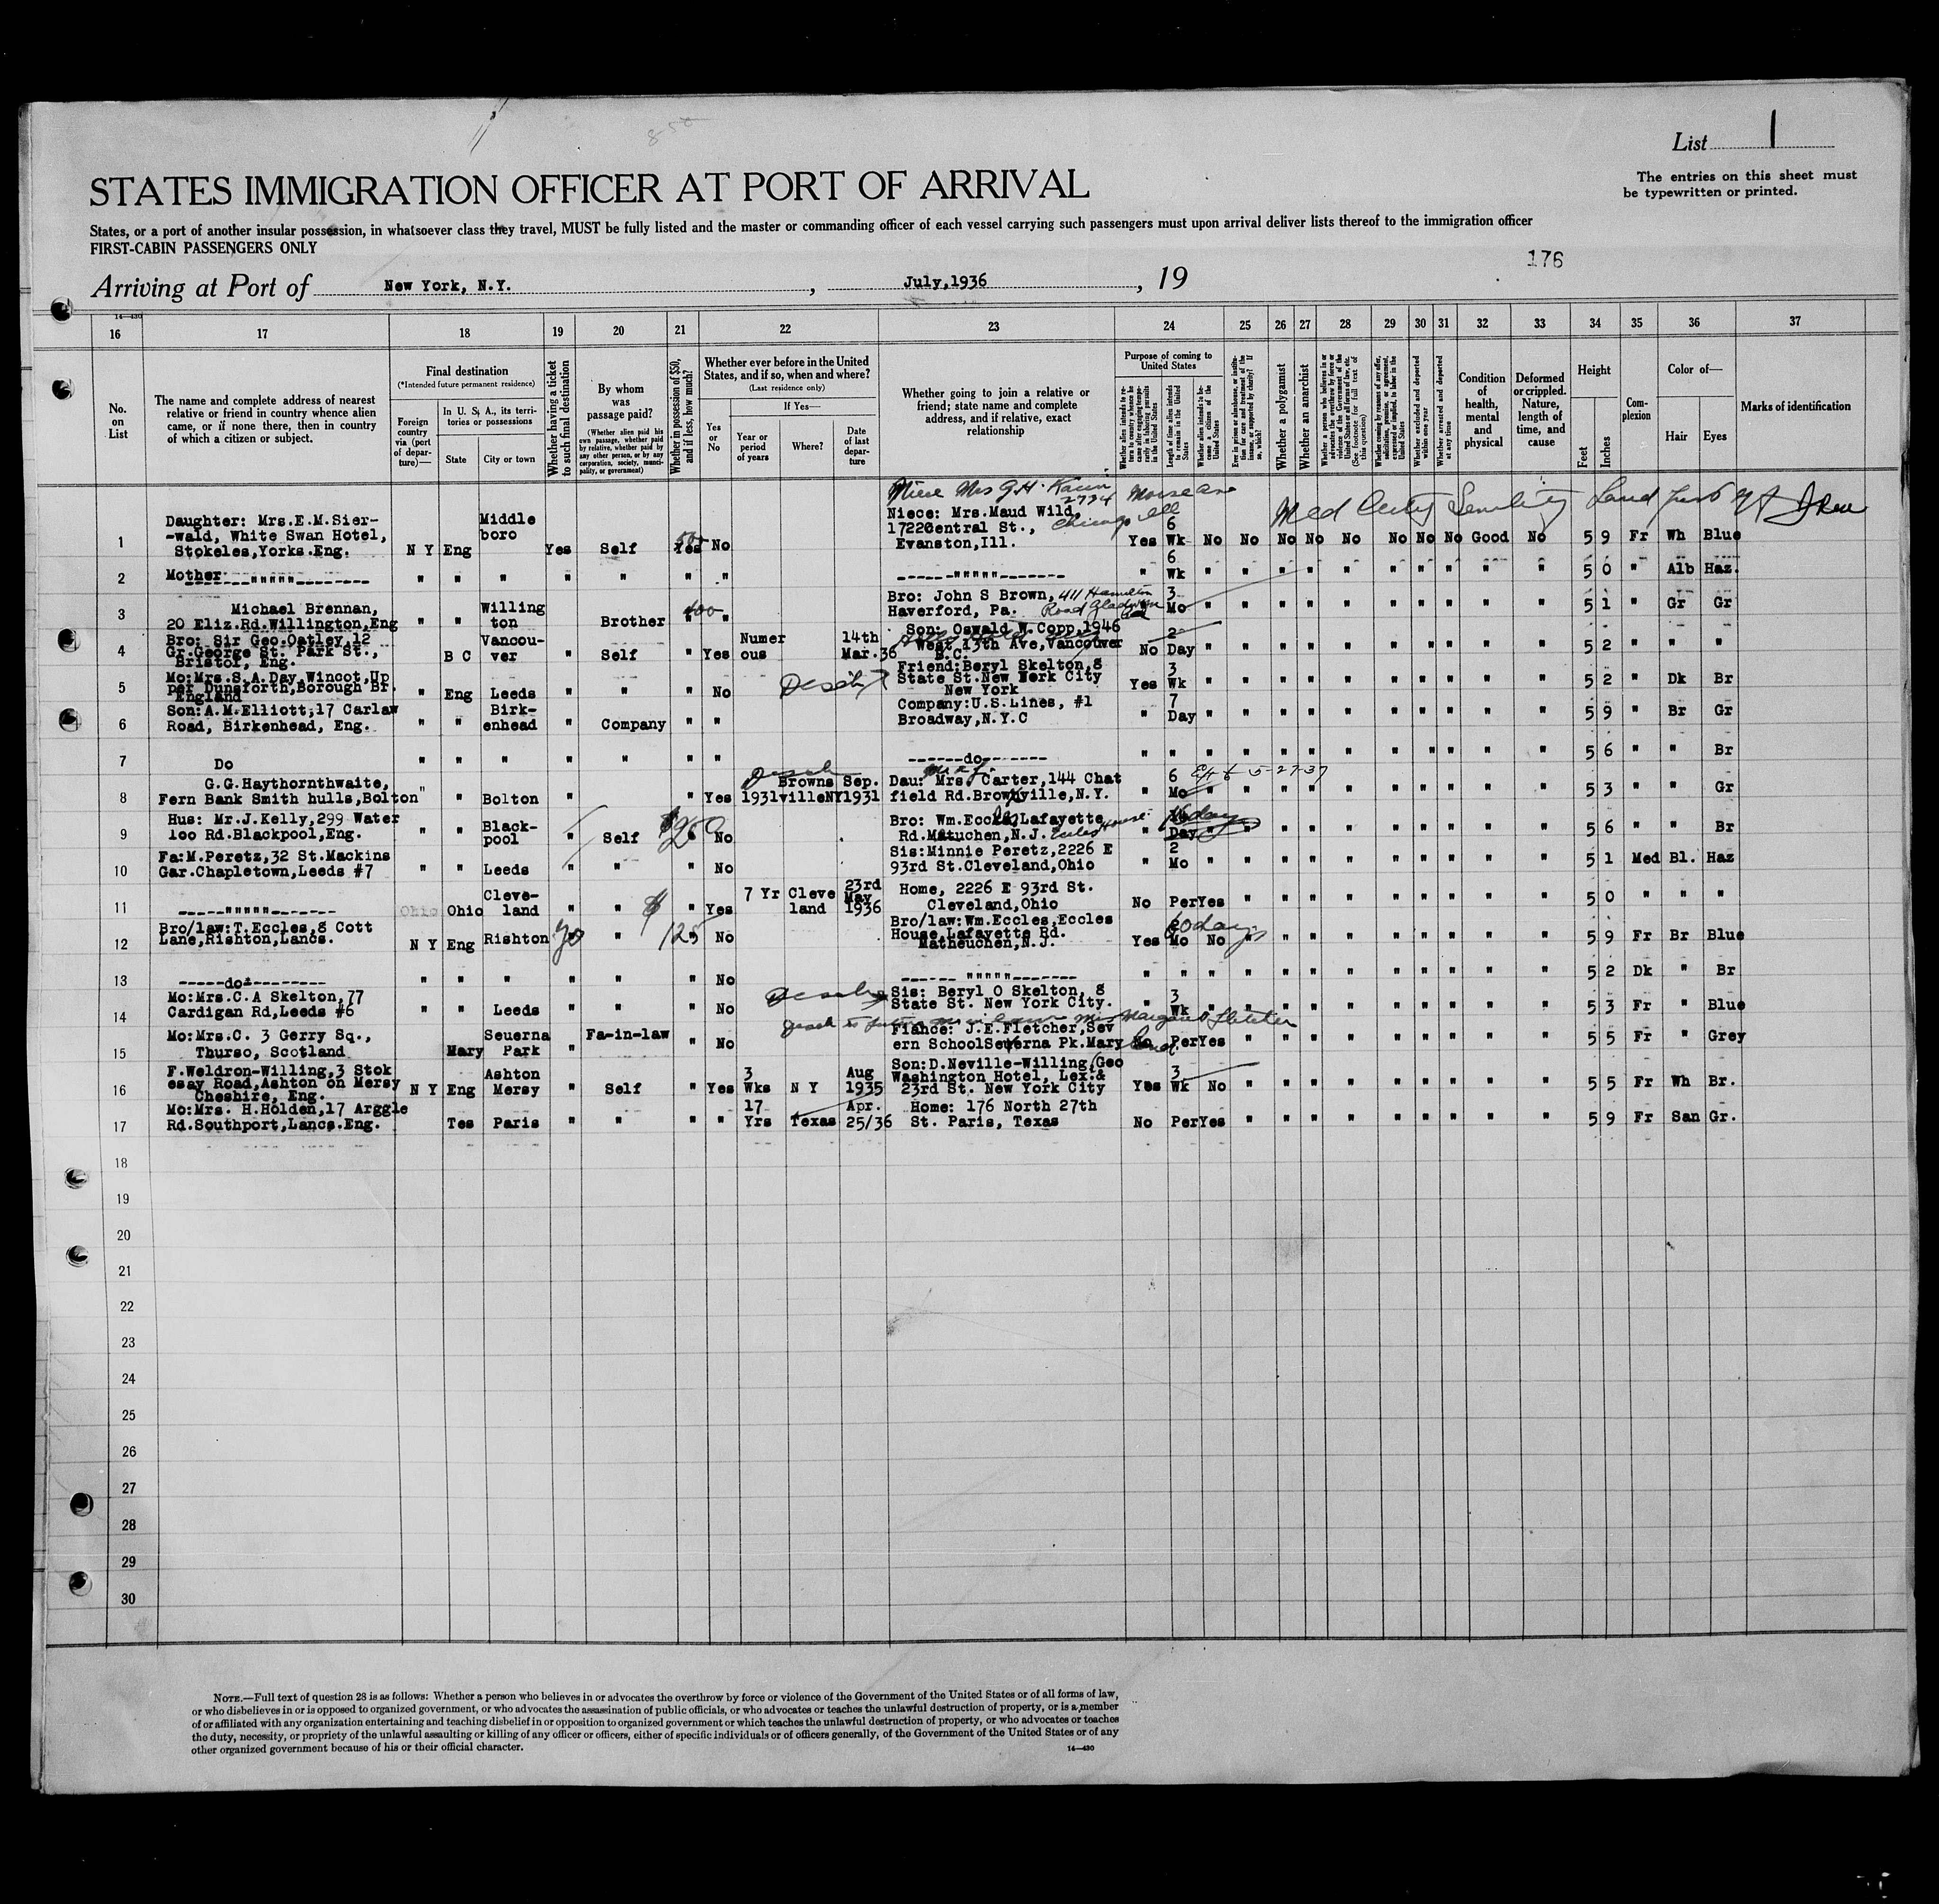 List 1
The entries on this sheet must
be typewritten or printed.
STATES IMMIGRATION OFFICER AT PORT OF ARRIVAL
States, or a port of another insular possession, in whatsoever class they travel, MUST be fully listed and the master or commanding officer of each vessel carrying such passengers must upon arrival deliver lists thereof to the immigration officer
FIRST-CABIN PASSENGERS ONLY
176
Arriving at Port of New York, N.Y. , July,1936 , 19
14—430
16 17 18 19 20 21 22 23 24 25 26 27 28 29 30 31 32 33 34 35 36 37
No. on List
The name and complete address of nearest relative or friend in country whence alien came, or if none there, then in country of which a citizen or subject.
Final destination
(*Intended future permanent residence)
Foreign country via (port of departure)—
In U. S. A., its territories or possessions
State
City or town
Whether having a ticket to such final destination
By whom was passage paid?
(Whether alien paid his own passage, whether paid by relative, whether paid by any other person, or by any corporation, society, municipality, or government)
Whether in possession of $50, and if less, how much?
Whether ever before in the United States, and if so, when and where?
(Last residence only)
Yes or No
If Yes—
Year or period of years
Where?
Date of last departure
Whether going to join a relative or friend; state name and complete address, and if relative, exact relationship
Purpose of coming to United States
Length of time alien intends to remain in the United States
Whether alien intends to become a citizen of the United States
Whether a polygamist
Whether an anarchist
Whether excluded and deported within one year
Whether arrested and deported at any time
Condition of health, mental and physical
Deformed or crippled. Nature, length of time, and cause
Height
Feet
Inches
Complexion
Color of—
Hair
Eyes
Marks of identification
Niece Mrs G.H. 2734 Chicago Ill
1 Daughter: Mrs.E.M.Sier-
-wald, White Swan Hotel,
Stokeles,Yorks.Eng. N Y Eng Middle
boro Yes Self Yes No Niece: Mrs.Maud Wild,
1722Central St.,
Evanston,Ill. Yes 6
Wk No No No No No No No No Good No 5 9 Fr Wh Blue
2 Mother------"""""--------- " " " " " " " ------"""""------- " 6
Wk " " " " " " " " " " 5 0 " Alb Haz.
3 Michael Brennan,
20 Eliz.Rd.Willington,Eng " " Willing
ton Brother " " Bro: John S Brown, 411 Hamilton
Haverford, Pa. Road 3
Mo " " " " " " " " " " 5 1 " Gr Gr
4 Bro: Sir Geo.Oatley,12
Gr.George St. Park St.,
Bristol, Eng. B C Vancou-
ver " Self " Yes Numer
ous 14th
Mar.36 Son: Oswald W.Copp,1946
West 13th Ave,Vancouver
B.C. No 2
Day " " " " " " " " " " 5 2 " " "
5 Mo:Mrs.S.A.Day,Wincot,Up
per Dunsforth,Borough Br.
England " Eng Leeds " " " No Friend:Beryl Skelton,8
State St.New York City
New York Yes 3
Wk " " " " " " " " " " 5 2 " Dk Br
6 Son:A.M.Elliott,17 Carlaw
Road, Birkenhead, Eng. " " Birk-
enhead " Company " " Company:U.S.Lines, #1
Broadway,N.Y.C " 7
Day " " " " " " " " " " 5 9 " Br Gr
7 Do " " " " " " " ------do------- " " " " " " " " " " " " 5 6 " " Br
8 G.G.Haythornthwaite,
Fern Bank Smith hulls,Bolton " " Bolton " " Yes 1931 Browns
villeNY Sep.
1931 Dau: Mrs. Carter,144 Chat
field Rd.Brownville,N.Y. " 6
Mo 5-27-37 " " " " " " " " " " 5 3 " " Gr
9 Hus: Mr.J.Kelly,299 Water
loo Rd.Blackpool,Eng. " " Black-
pool " Self No Bro: Wm.Eccles,Lafayette
Rd.Matuchen,N.J. " Day " " " " " " " " " 5 6 " " Br
10 Fa:M.Peretz,32 St.Mackins
Gar.Chapletown,Leeds #7 " " Leeds " " " No Sis:Minnie Peretz,2226 E
93rd St.Cleveland,Ohio " 2
Mo " " " " " " " " " " 5 1 Med Bl. Haz
11 -----"""""------- Ohio Ohio Cleve-
land " " " Yes 7 Yr Cleve
land 23rd
May
1936 Home, 2226 E 93rd St.
Cleveland,Ohio No Per Yes " " " " " " " " " 5 0 " " "
12 Bro/law:T.Eccles,8 Cott
Lane,Rishton,Lancs. N Y Eng Rishton " " 125 No Bro/law:Wm.Eccles,Eccles
House,Lafayette Rd.
Matheuchen,N.J. Yes 60 days
Mo No " " " " " " " " " 5 9 Fr Br Blue
13 -----do--------- " " " " " " No ------ """""------- " " " " " " " " " " " " 5 2 Dk " Br
14 Mo:Mrs.C.A Skelton,77
Cardigan Rd,Leeds #6 " " Leeds " " " No Sis: Beryl O Skelton, 8
State St. New York City. " 3
Wk " " " " " " " " " " 5 3 Fr " Blue
Margaret Fletcher
15 Mo:Mrs.C. 3 Gerry Sq.,
Thurso, Scotland Mary Seuerna
Park " Fa-in-law " No Fiance: J.E.Fletcher,Sev
ern SchoolSeverna Pk.Mary No Per Yes " " " " " " " " " 5 5 Fr " Grey
16 F.Weldron-Willing,3 Stok
esay Road,Ashton on Mersy
Cheshire, Eng. N Y Eng Ashton
Mersy " Self " Yes 3
Wks N Y Aug
1935 Son:D.Neville-Willing,Geo
Washington Hotel, Lex.&
23rd St. New York City Yes 3
Wk No " " " " " " " " " 5 5 Fr Wh Br.
17 Mo:Mrs. H.Holden,17 Arggle
Rd.Southport,Lancs.Eng. Tes Paris " " " " 17
Yrs Texas Apr.
25/36 Home: 176 North 27th
St. Paris, Texas No Per Yes " " " " " " " " " 5 9 Fr San Gr.
18
19
20
21
22
23
24
25
26
27
28
29
30
NOTE.—Full text of question 28 is as follows: Whether a person who believes in or advocates the overthrow by force or violence of the Government of the United States or of all forms of law,
or who disbelieves in or is opposed to organized government, or who advocates the assassination of public officials, or who advocates or teaches the unlawful destruction of property, or is a member
of or affiliated with any organization entertaining and teaching disbelief in or opposition to organized government or which teaches the unlawful destruction of property, or who advocates or teaches
the duty, necessity, or propriety of the unlawful assaulting or killing of any officer or officers, either of specific individuals or of officers generally, of the Government of the United States or of any
other organized government because of his or their official character.
14—430